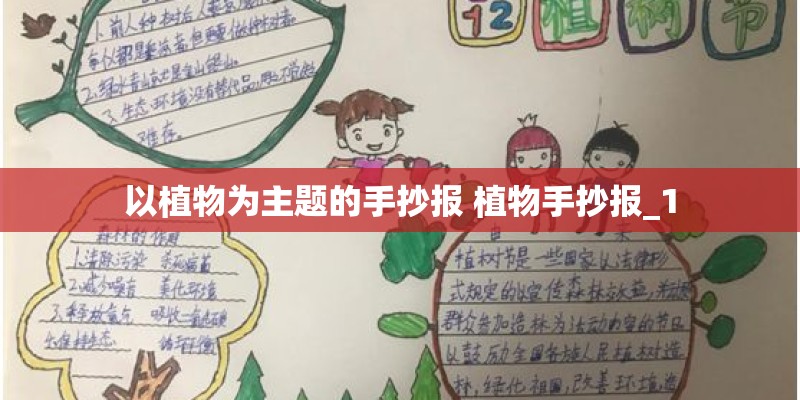 1.前人种树后人乘凉
2.绿水青山就是金山银山。
3.生态环境没有替代品,用之不觉
难存。
312
植树节
以植物为主题的手抄报 植物手抄报_1
森林的作用
1.清除污染 杀死病菌
2.减少噪音 美化环境
3.释放氧气 吸收二氧化碳
4.保持生态
由 来
植树节是一些国家以法律形
式规定的以宣传森林效益,并动员
群众参加造林为活动内容的节日
以鼓励全国各族人民植树造
林,绿化祖国,改善环境,造